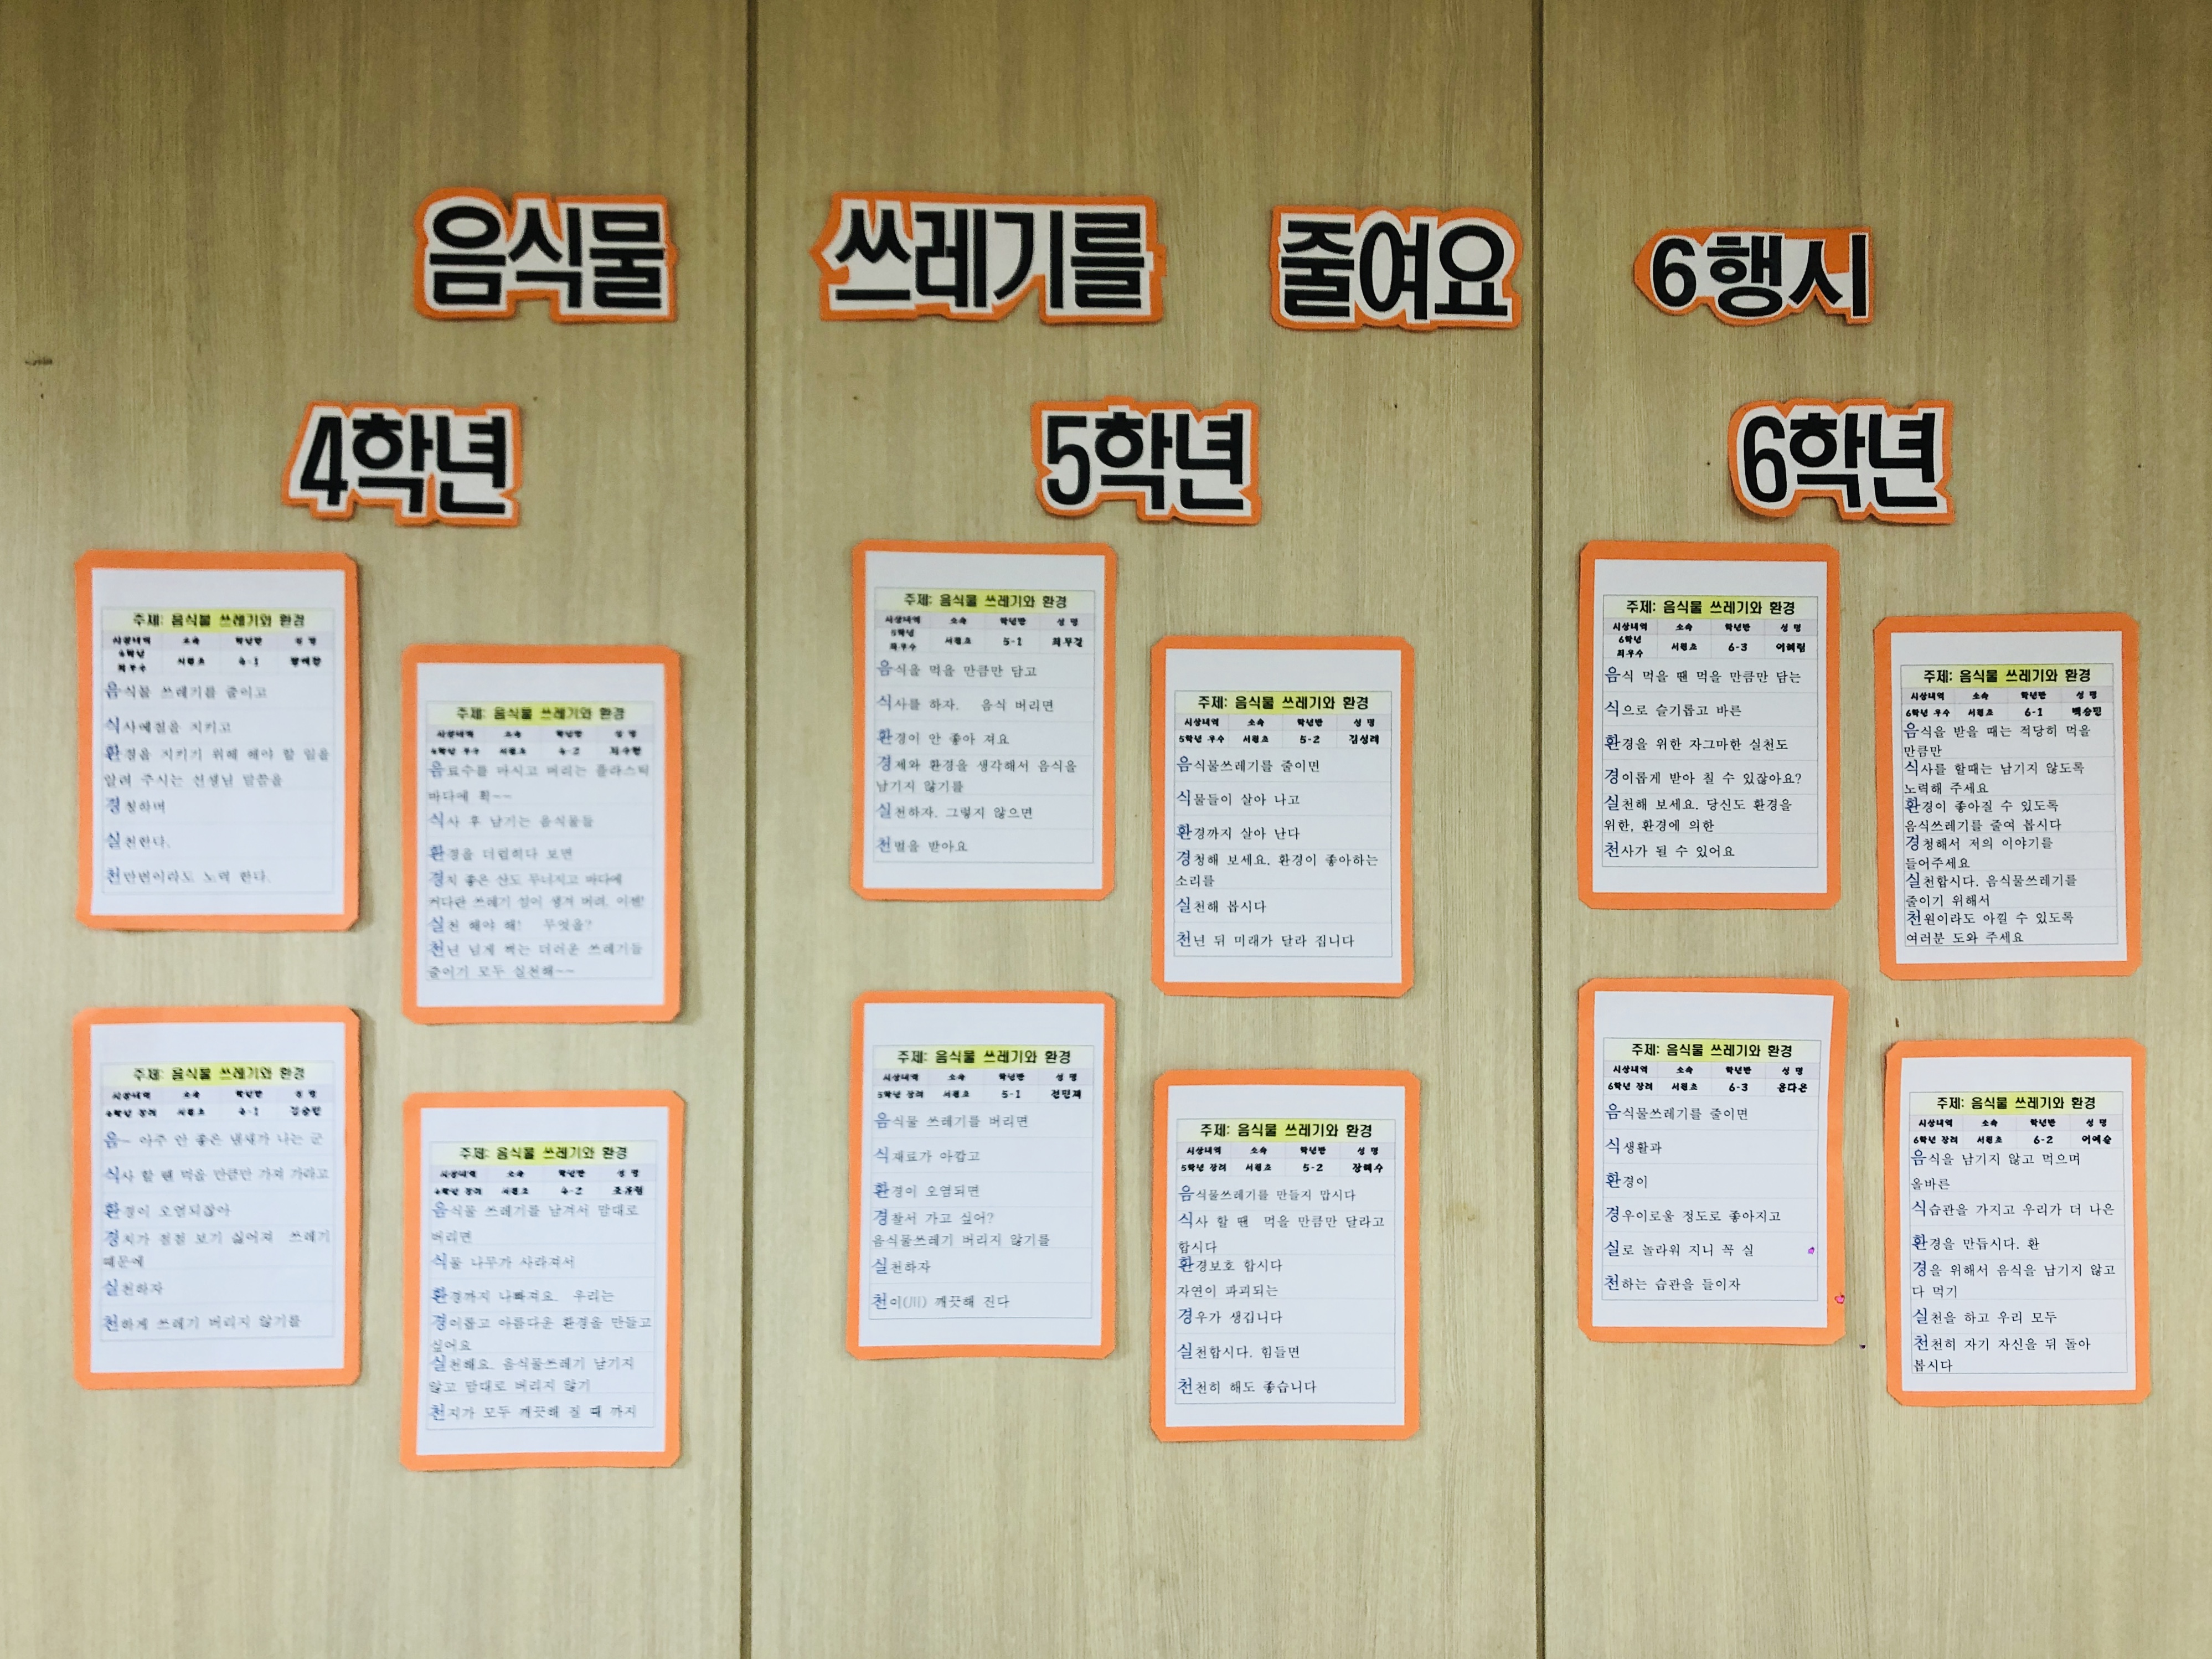 음식물 쓰레기를 줄여요 6행시
4학년
주제: 음식물 쓰레기와 환경
시상내역 소속 학년반 성 명
4학년 최우수 서원초 4-1
음식물 쓰레기를 줄이고
식사예절을 지키고
환경을 지키기 위해 해야 할 일을
알려 주시는 선생님 말씀을
경청하며
실천한다.
천만번이라도 노력 한다.
주제: 음식물 쓰레기와 환경
시상내역 소속 학년반 성 명
4학년 우수 서원초 4-2
음료수를 마시고 버리는 플라스틱
바다에 획~~
식사 후 남기는 음식물들
환경을 더럽히다 보면
경치 좋은 산도 무너지고 바다에
커다란 쓰레기 섬이 생겨 버려. 이젠!
실천 해야 해! 무엇을?
천년 넘게 썩는 더러운 쓰레기들
줄이기 모두 실천해~~
주제: 음식물 쓰레기와 환경
시상내역 소속 학년반 성 명
4학년 장려 서원초 4-1 김승민
음~ 아주 안 좋은 냄새가 나는 군
식사 할 땐 먹을 만큼만 가져 가라고
환경이 오염되잖아
경치가 점점 보기 싫어져 쓰레기
때문에
실천하자
천하게 쓰레기 버리지 않기를
주제: 음식물 쓰레기와 환경
시상내역 소속 학년반 성 명
4학년 장려 서원초 4-2
음식물 쓰레기를 남겨서 맘대로
버리면
식물 나무가 사라져서
환경까지 나빠져요. 우리는
경이롭고 아름다운 환경을 만들고
싶어요
실천해요. 음식물쓰레기 남기지
않고 맘대로 버리지 않기
천지가 모두 깨끗해 질 때 까지
5학년
주제: 음식물 쓰레기와 환경
시상내역 소속 학년반 성 명
5학년 최우수 서원초 5-1 최무결
음식을 먹을 만큼만 담고
식사를 하자. 음식 버리면
환경이 안 좋아 져요
경제와 환경을 생각해서 음식을
남기지 않기를
실천하자. 그렇지 않으면
천벌을 받아요
주제: 음식물 쓰레기와 환경
시상내역 소속 학년반 성 명
5학년 우수 서원초 5-2 김성례
음식물쓰레기를 줄이면
식물들이 살아 나고
환경까지 살아 난다
경청해 보세요. 환경이 좋아하는
소리를
실천해 봅시다
천년 뒤 미래가 달라 집니다
주제: 음식물 쓰레기와 환경
시상내역 소속 학년반 성 명
5학년 장려 서원초 5-1 전민재
음식물 쓰레기를 버리면
식재료가 아깝고
환경이 오염되면
경찰서 가고 싶어?
음식물쓰레기 버리지 않기를
실천하자
천이(川) 깨끗해 진다
주제: 음식물 쓰레기와 환경
시상내역 소속 학년반 성 명
5학년 장려 서원초 5-2 장혜수
음식물쓰레기를 만들지 맙시다
식사 할 땐 먹을 만큼만 달라고
합시다
환경보호 합시다
자연이 파괴되는
경우가 생깁니다
실천합시다. 힘들면
천천히 해도 좋습니다
6학년
주제: 음식물 쓰레기와 환경
시상내역 소속 학년반 성 명
6학년 최우수 서원초 6-3 이혜림
음식 먹을 땐 먹을 만큼만 담는
식으로 슬기롭고 바른
환경을 위한 자그마한 실천도
경이롭게 받아 칠 수 있잖아요?
실천해 보세요. 당신도 환경을
위한, 환경에 의한
천사가 될 수 있어요
주제: 음식물 쓰레기와 환경
시상내역 소속 학년반 성 명
6학년 우수 서원초 6-1 백승민
음식을 받을 때는 적당히 먹을
만큼만
식사를 할때는 남기지 않도록
노력해 주세요
환경이 좋아질 수 있도록
음식쓰레기를 줄여 봅시다
경청해서 저의 이야기를
들어주세요
실천합시다. 음식물쓰레기를
줄이기 위해서
천원이라도 아낄 수 있도록
여러분 도와 주세요
주제: 음식물 쓰레기와 환경
시상내역 소속 학년반 성 명
6학년 장려 서원초 6-3 윤다은
음식물쓰레기를 줄이면
식생활과
환경이
경우이로울 정도로 좋아지고
실로 놀라워 지니 꼭 실
천하는 습관을 들이자
주제: 음식물 쓰레기와 환경
시상내역 소속 학년반 성 명
6학년 장려 서원초 6-2 이예슬
음식을 남기지 않고 먹으며
올바른
식습관을 가지고 우리가 더 나은
환경을 만듭시다. 환
경을 위해서 음식을 남기지 않고
다 먹기
실천을 하고 우리 모두
천천히 자기 자신을 뒤 돌아
봅시다